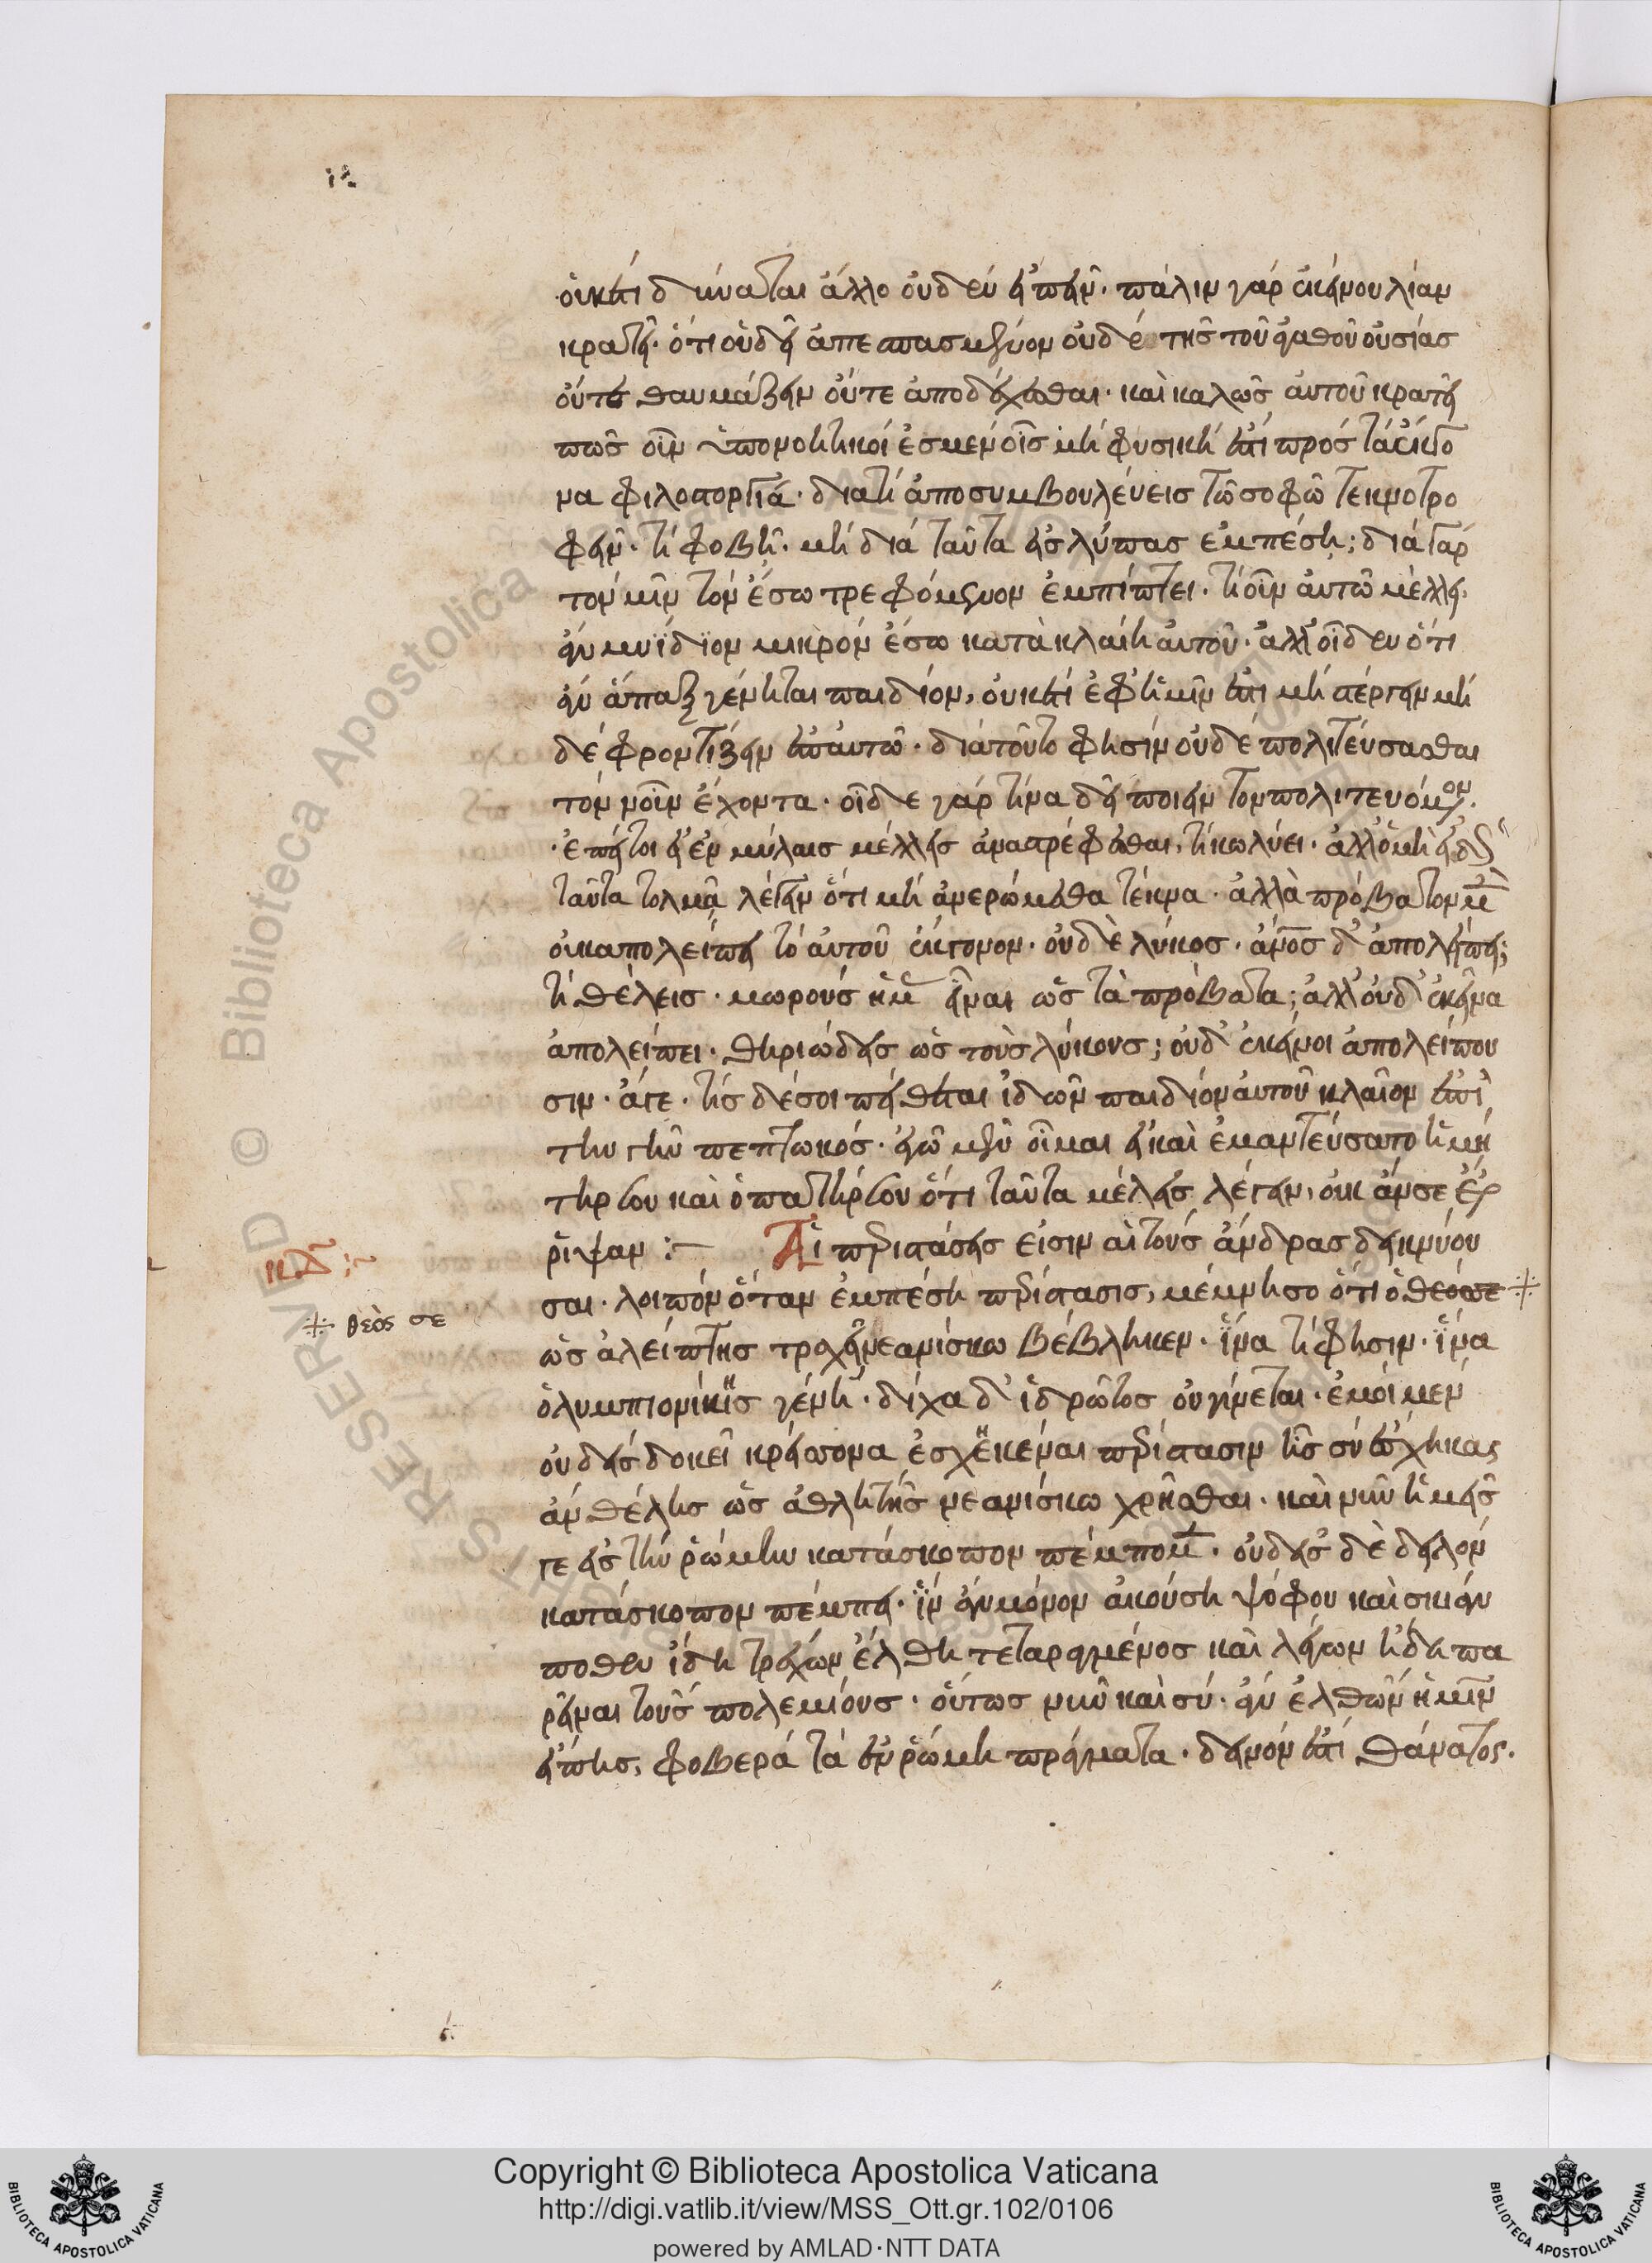 οὐκέτι δύναται ἄλλο οὐδὲν εἰπεῖν. πάλιν γὰρ ἐκεῖνου λίαν
κρατεῖ. ὅτι οὐ δεῖ ἀπεσπασμένον οὐδὲ τῆς τοῦ ἀγαθοῦ οὐσίας
οὔτε θαυμάζειν οὔτε ἀποδέχεσθαι. καὶ καλῶς αὐτοῦ κρατεῖ
πῶς οὖν ὑπονοητικοί ἐσμεν οἷς μὴ φυσικὴ ἐστὶ πρὸς τὰ ἔκγο
να φιλοστοργία. διατί ἀποσυμβουλεύεις τῶ σοφῶ τεκνοτρο
φεῖν. τί φοβῆ. μὴ διὰ ταῦτα εἰς λύπας ἐμπέση; διὰ γὰρ
τὸν μῦν τὸν ἔσω τρεφόμενον ἐμπίπτει. τί οὖν αὐτῶ μέλλει.
ἂν μυΐδϊον μικρὸν ἔσω κατὰκλαίη αὐτοῦ. ἀλλ' οἶδεν ὅτι
ἂν ἅπαξ γένηται παιδίον, οὐκέτι ἐφ' ἡμῖν ἐστὶ μὴ στέργειν μὴ
δὲ φροντίζειν ἐπ' αὐτῶ. διὰ τοῦτο φησὶν οὐδὲ πολιτεύσασθαι
τὸν νοῦν ἔχοντα. οἶδε γὰρ τίνα δεῖ ποιεῖν τὸν πολιτευόμενον.
ἐπεί τοι εἰ ἐν μύλαις μέλλεις ἀναστρέφεσθαι, τί κωλύει. ἀλλ' ὁ μὴ εἰδὼς
ταῦτα τολμᾶ λέγειν ὅτι μὴ ἀνερώμεθα τέκνα. ἀλλὰ πρόβατον μὲν
οὐκ απολείπει τὸ αὑτοῦ ἔκγονον. οὐδὲ λύκος. ἄνος δ' ἀπολείπει;
τί θέλεις. μωροὺς ἡμᾶς εἶναι ὡς τὰ πρόβατα; ἀλλ' οὐδ' ἐκεῖνα
ἀπολείπει. θηριώδεις ὡς τοὺς λύκους; οὐδ' ἐκεῖνοι ἀπολείπου
σιν. ἄγε. τίς δέ σοι πείθεται ἰδὼν παιδίον αὐτοῦ κλαῖον ἐπὶ
τὴν γῆν πεπτωκός. ἐγὼ μὲν οἶμαι εἰ καὶ ἐμαντεύσατο ἡ μή
τηρ σου καὶ ὁ πατήρ σου ὅτι ταῦτα μέλεις λέγειν, οὐκ ἄν σε ἔρ
ριψαν :— Αἱ περιστάσεις εἰσὶν αἱ τοὺς ἄνδρας δεικνύου
κδ :~
σαι. λοιπὸν ὅταν ἐμπέση περίστασις, μέμνησο ὅτι ὁ θεός σε
θεὸς σε
ὡς ἀλείπτης τραχεῖ νεανίσκω βέβληκεν. ἵνα τί φησιν. ἵνα
ὀλυμπιονίκης γένη. δίχα δ' ἱδρῶτος οὐ γίνεται. ἐμοὶ μεν
οὐδεὶς δοκεῖ κρείττονα ἐσχηκέναι περίστασιν ἧς σὺ ἔσχηκας
ἂν θέλης ὡς ἀθλητὴς νεανίσκω χρῆσθαι. καὶ νῦν ἡμεῖς
γε εἰς τὴν ῥώμην κατάσκοπον πέμπομεν. οὐδεὶς δὲ δειλὸν
κατάσκοπον πέμπει. ἵν' ἂν μόνον ἀκούση ψόφου καὶ σκιὰν
ποθεν ἴδη τρέχων ἔλθη τεταραγμένος καὶ λέγων ἤδη πα
ρεῖναι τοὺς πολεμίους. οὕτως νῦν καὶ σύ. ἂν ἐλθὼν ἡμῖν
εἴπης, φοβερὰ τὰ ἐν ῥώμη πράγματα. δεινόν ἐστὶ θάνατος.
Copyright © Biblioteca Apostolica Vaticana
http://digi.vatlib.it/view/MSS_Ott.gr.102/0106
powered by AMLAD·NTT DATA